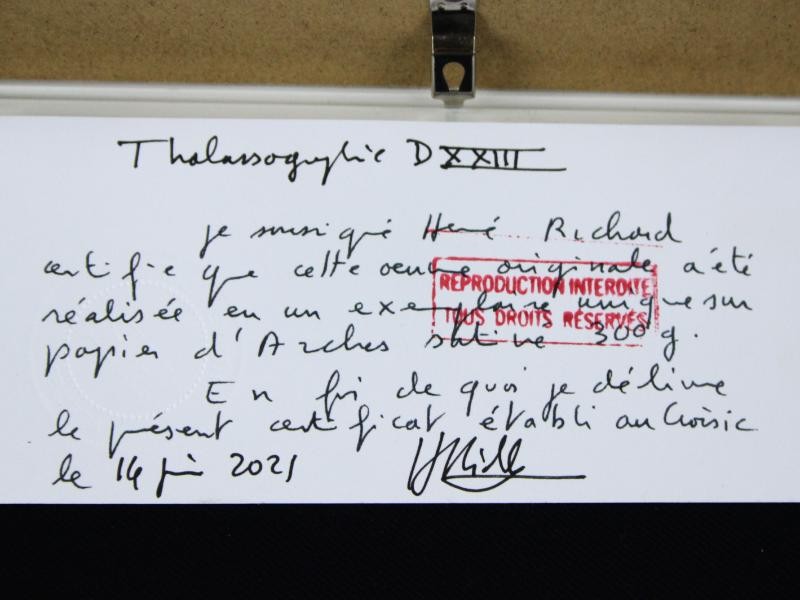 Thalassographie DXXIII
je soussigné Hervé Richard
certifie que cette oeuvre originale a été
réalisée en un exemplaire unique sur
papier d'Arches satiné 300 g.
REPRODUCTION INTERDITE
TOUS DROITS RÉSERVÉS
En foi de quoi je délivre
le présent certificat établi au Croisic
le 14 juin 2021